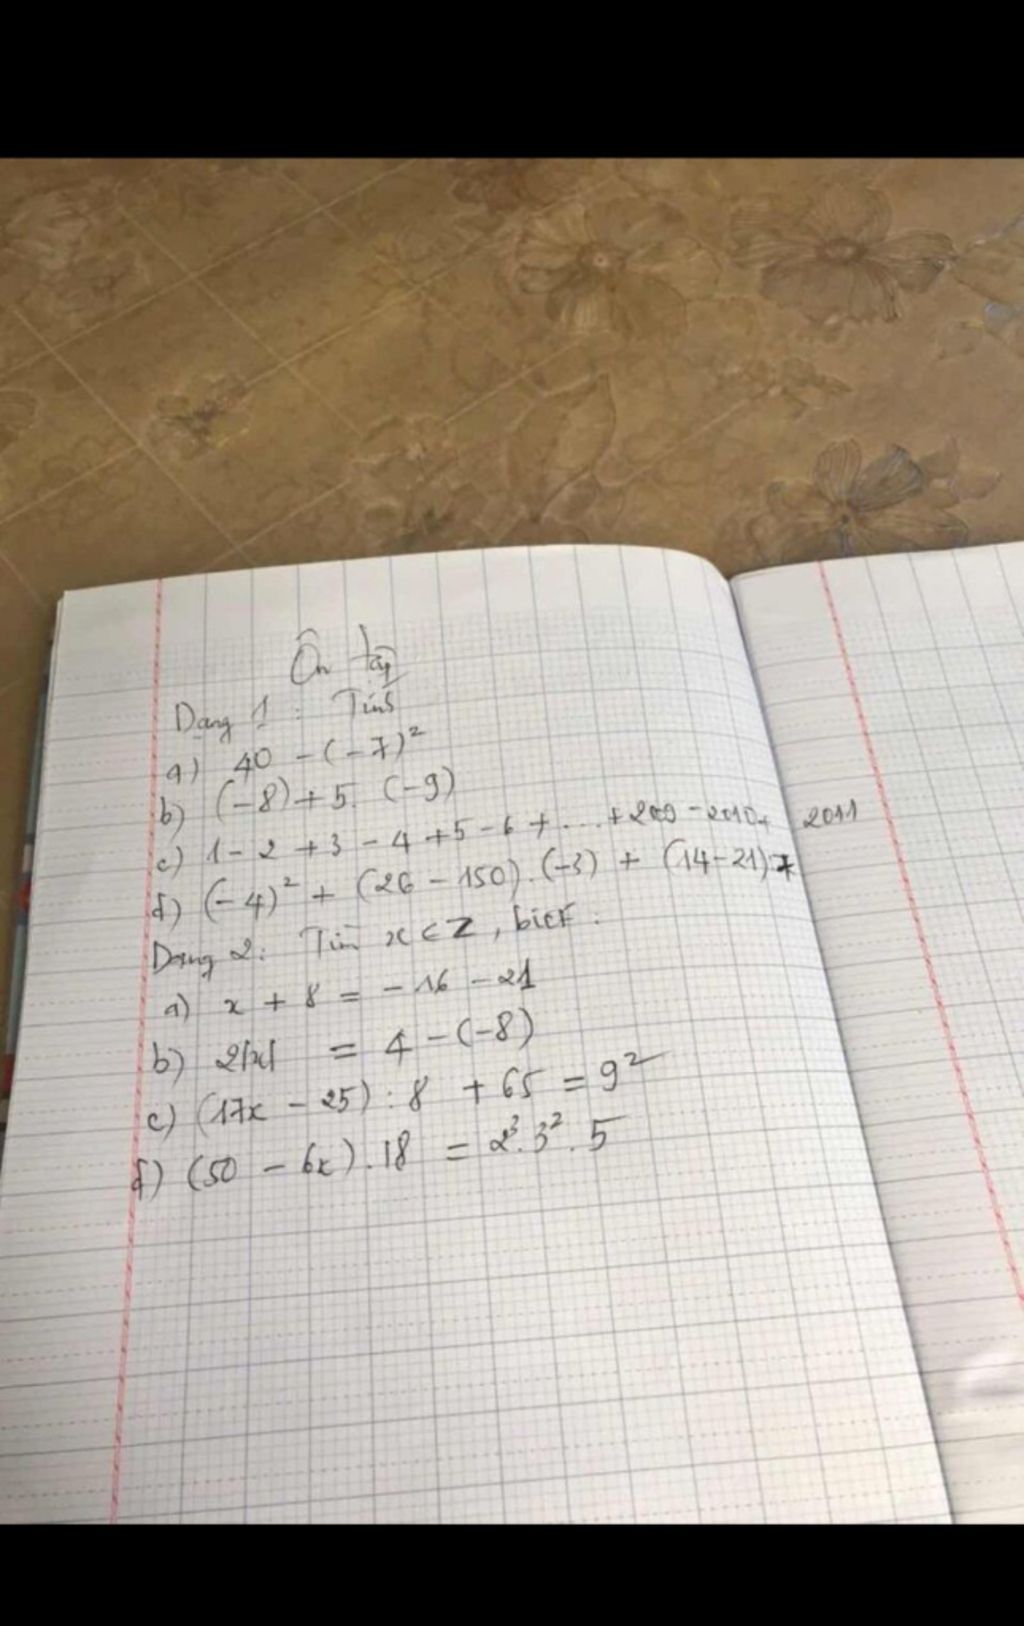 Ôn tập
Dạng 1 : Tính
a) 40 - (-7)²
b) (-8) + 5. (-9)
c) 1 - 2 + 3 - 4 + 5 - 6 + ... + 2009 - 2010 + 2011
d) (-4)² + (26 - 150) . (-3) + (14 - 21) 7
Dạng 2: Tìm x ∈ Z, biết :
a) x + 8 = -16 - 21
b) 2|x| = 4 - (-8)
c) (17x - 25) : 8 + 65 = 9²
d) (50 - 6x) . 18 = 2³. 3² . 5